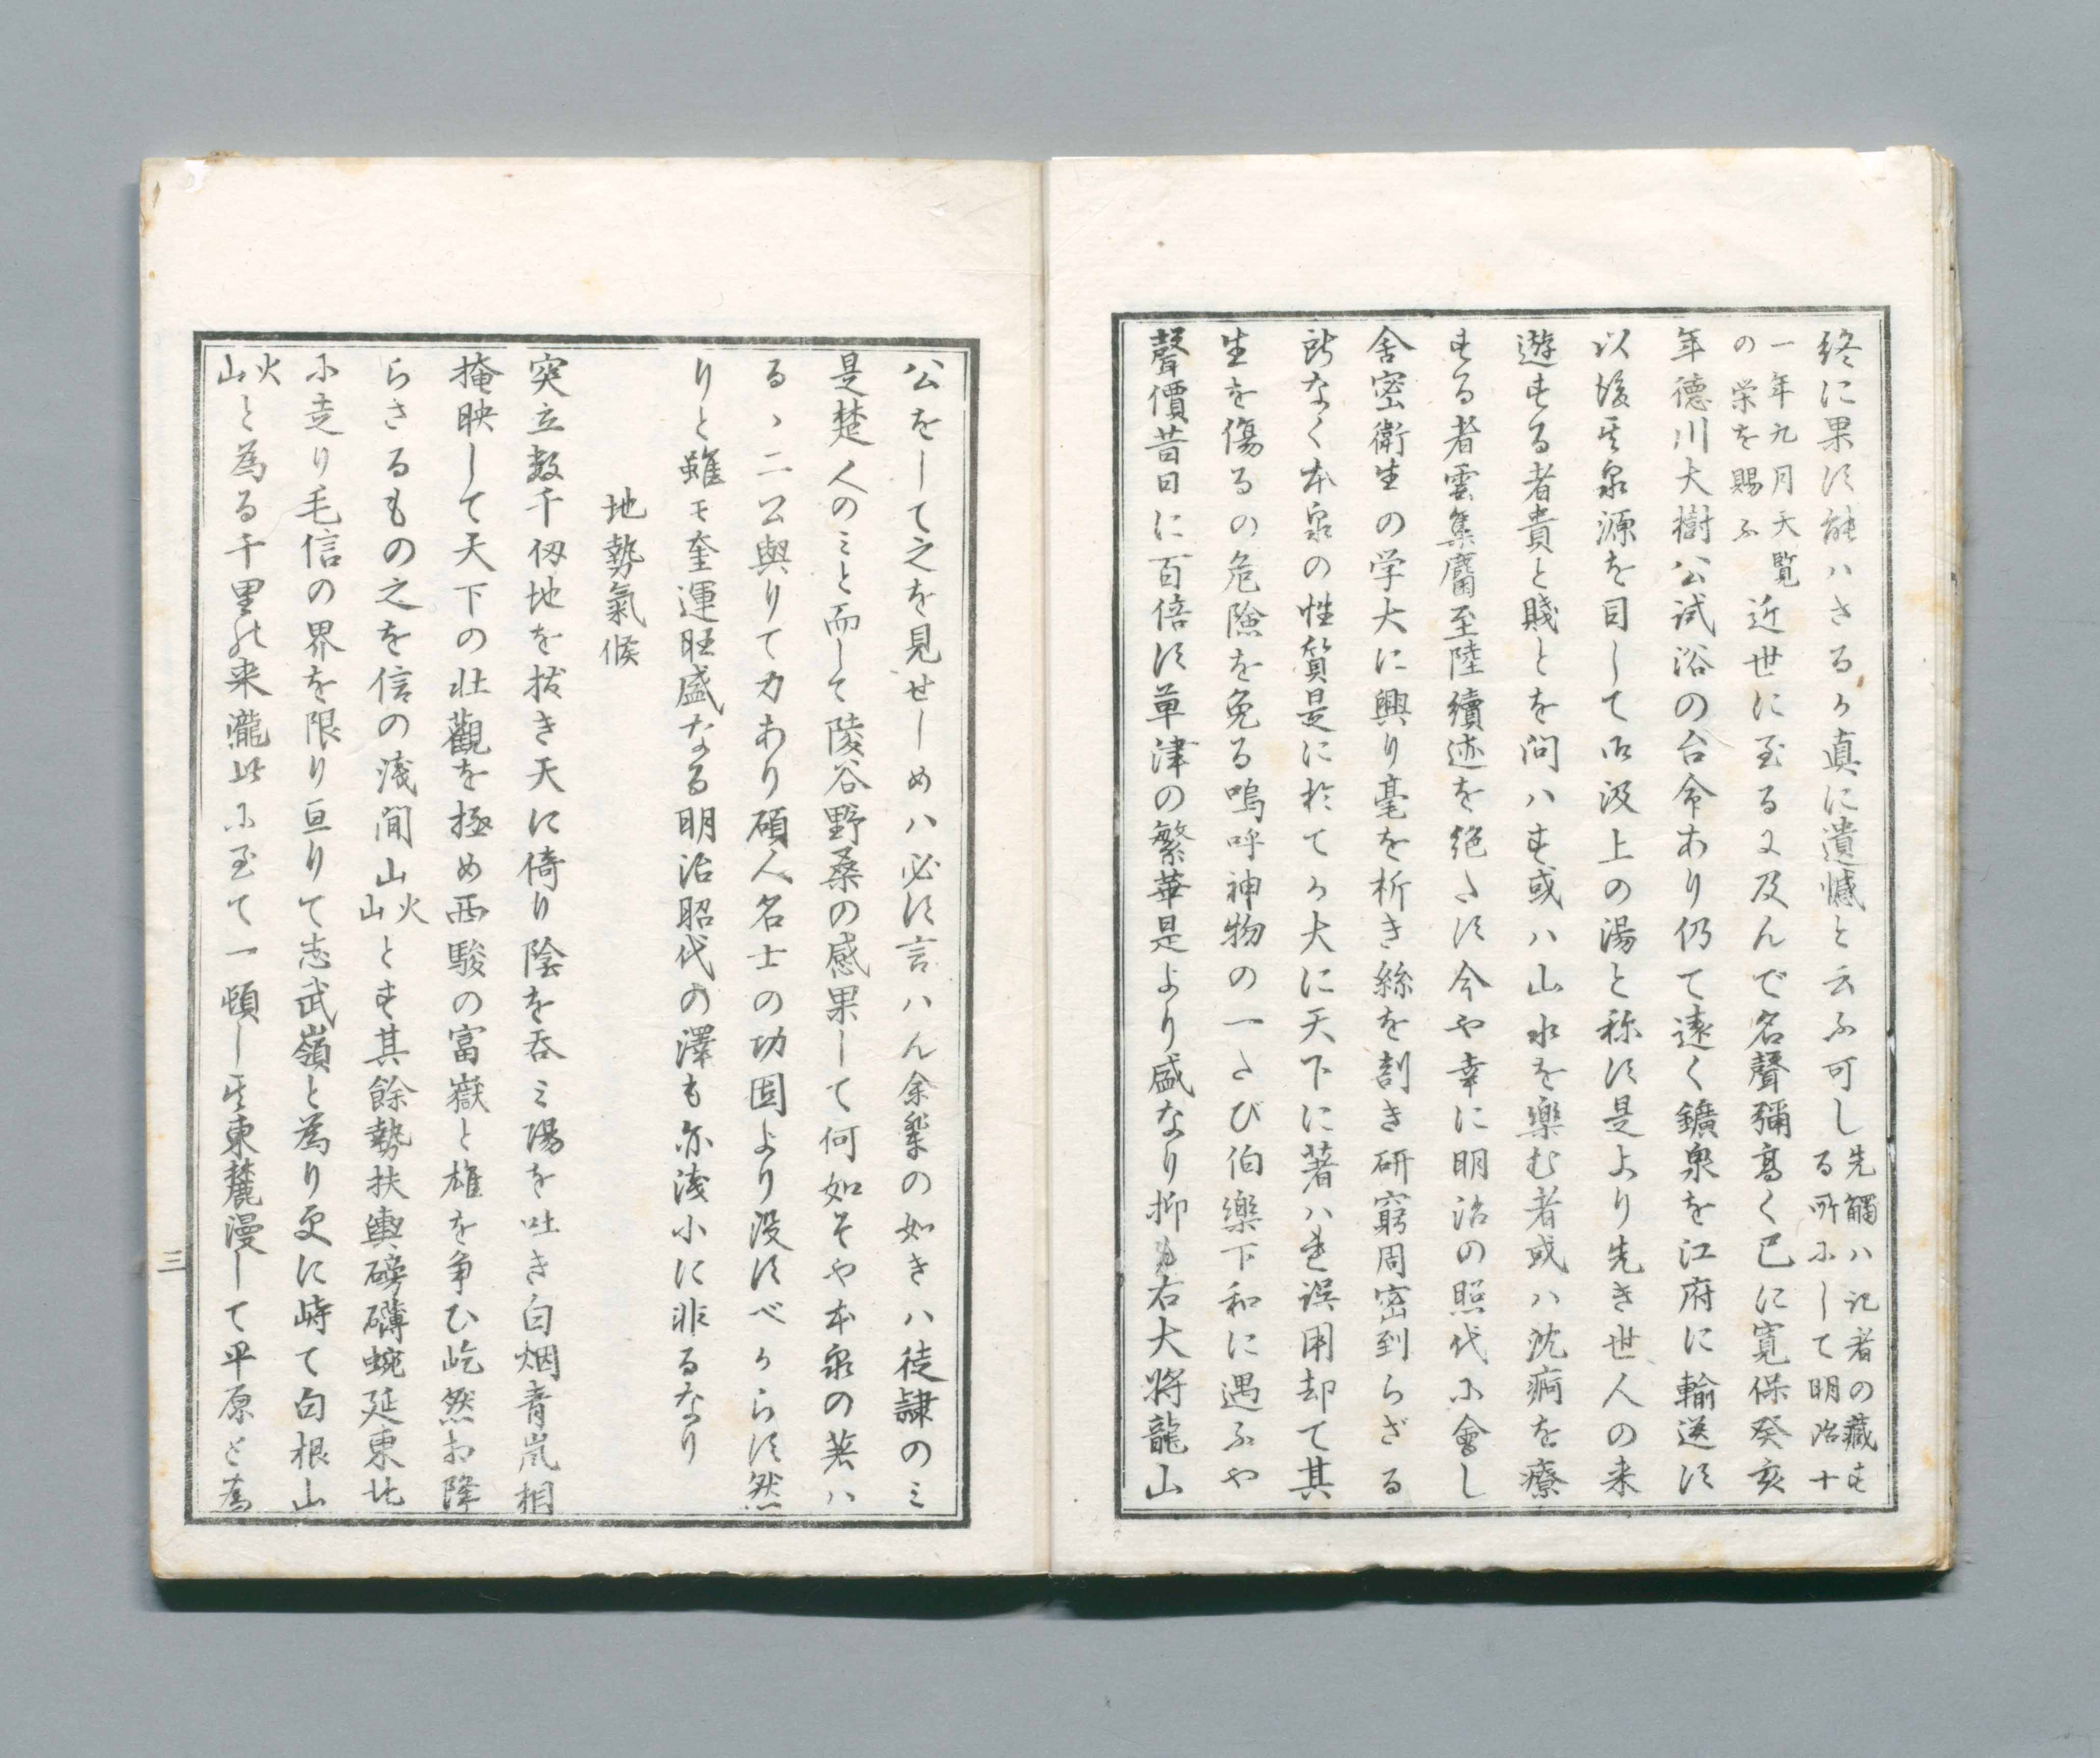 終に果に能ハさるか真に遺憾と云ふ可し先觸ハ記者の藏す
る所ふして明治十
一年九月天覧
の栄を賜ふ
近世に至るに及んで名聲彌高く已に寛保癸亥
年德川大樹公試浴の台命あり仍て遠く鑛泉を江府に輸送す
以後其泉源を目して御汲上の湯と称す是より先き世人の来
遊する者貴と賤とを問ハす或ハ山水を樂む者或ハ沈痾を療
する者雲集麕至陸續迹を絶たす今や幸に明治の照代ふ會し
舍密衛生の学大に興り毫を析き絲を割き研窮周密到らざる
所なく本泉の性質是に於てか大に天下に著ハれ誤用却て其
生を傷るの危險を免る嗚呼神物の一たび伯樂下和に遇ふや
聲價昔日に百倍す草津の繁華是より盛なり抑も右大将龍山
公をして之を見せしめハ必す言ハん余輩の如きハ徒隷のミ
是楚人のミと而して陵谷野桑の感果して何如そや本泉の著ハ
るヽ二公與りて力あり碩人名士の功固より没すべからす然
りと雖モ奎運旺盛なる明治昭代の澤も亦淺小に非るなり
地勢氣候
突立数千仭地を拔き天に倚り陰を呑ミ陽を吐き白烟青嵐相
掩映して天下の壮觀を極め西駿の富嶽と雄を争ひ屹然相降
らさるもの之を信の淺間山火山とす其餘勢扶輿磅礴蜿延東北
ふ走り毛信の界を限り亘りて志武嶺と為り更に峙て白根山
火山と為る千里の来瀧此ふ至て一頓し其東麓漫して平原と為
三